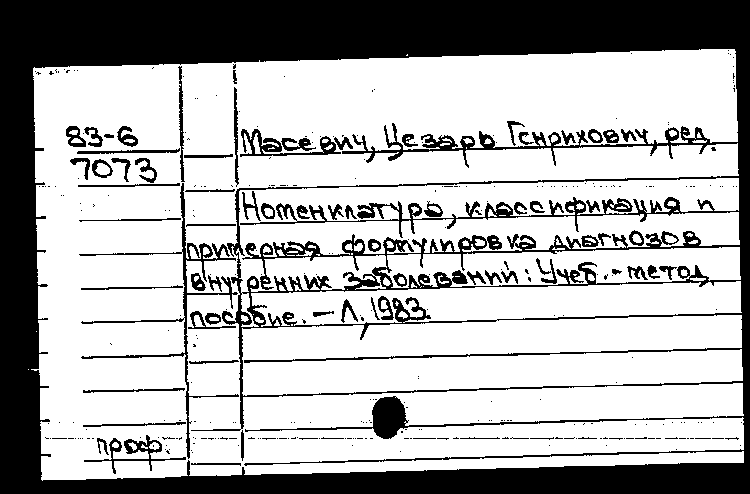 83-6
7073
Масевич, Цезарь Генрихович, ред.
Номенклатура, классификация и
примерная формулировка диагнозов
внутренних заболеваний: Учеб.-метод.
пособие. - Л., 1983.
проф.